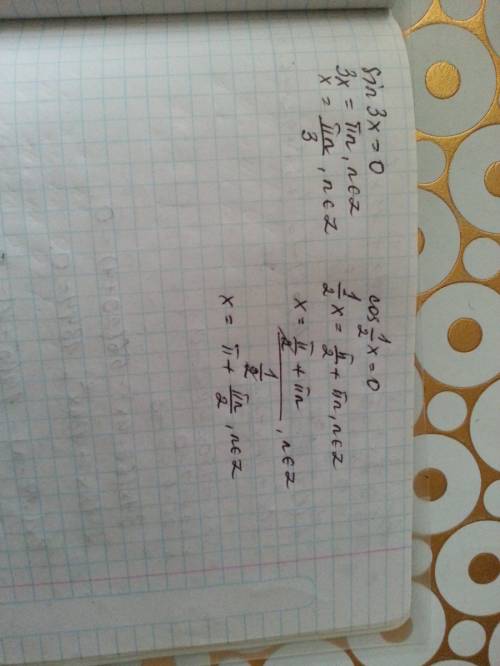 sin 3x = 0
3x = πn, n∈z
x = πn/3, n∈z
cos 1/2 x = 0
1/2 x = π/2 + πn, n∈z
x = (π/2 + πn)/(1/2), n∈z
x = π + πn/2, n∈z